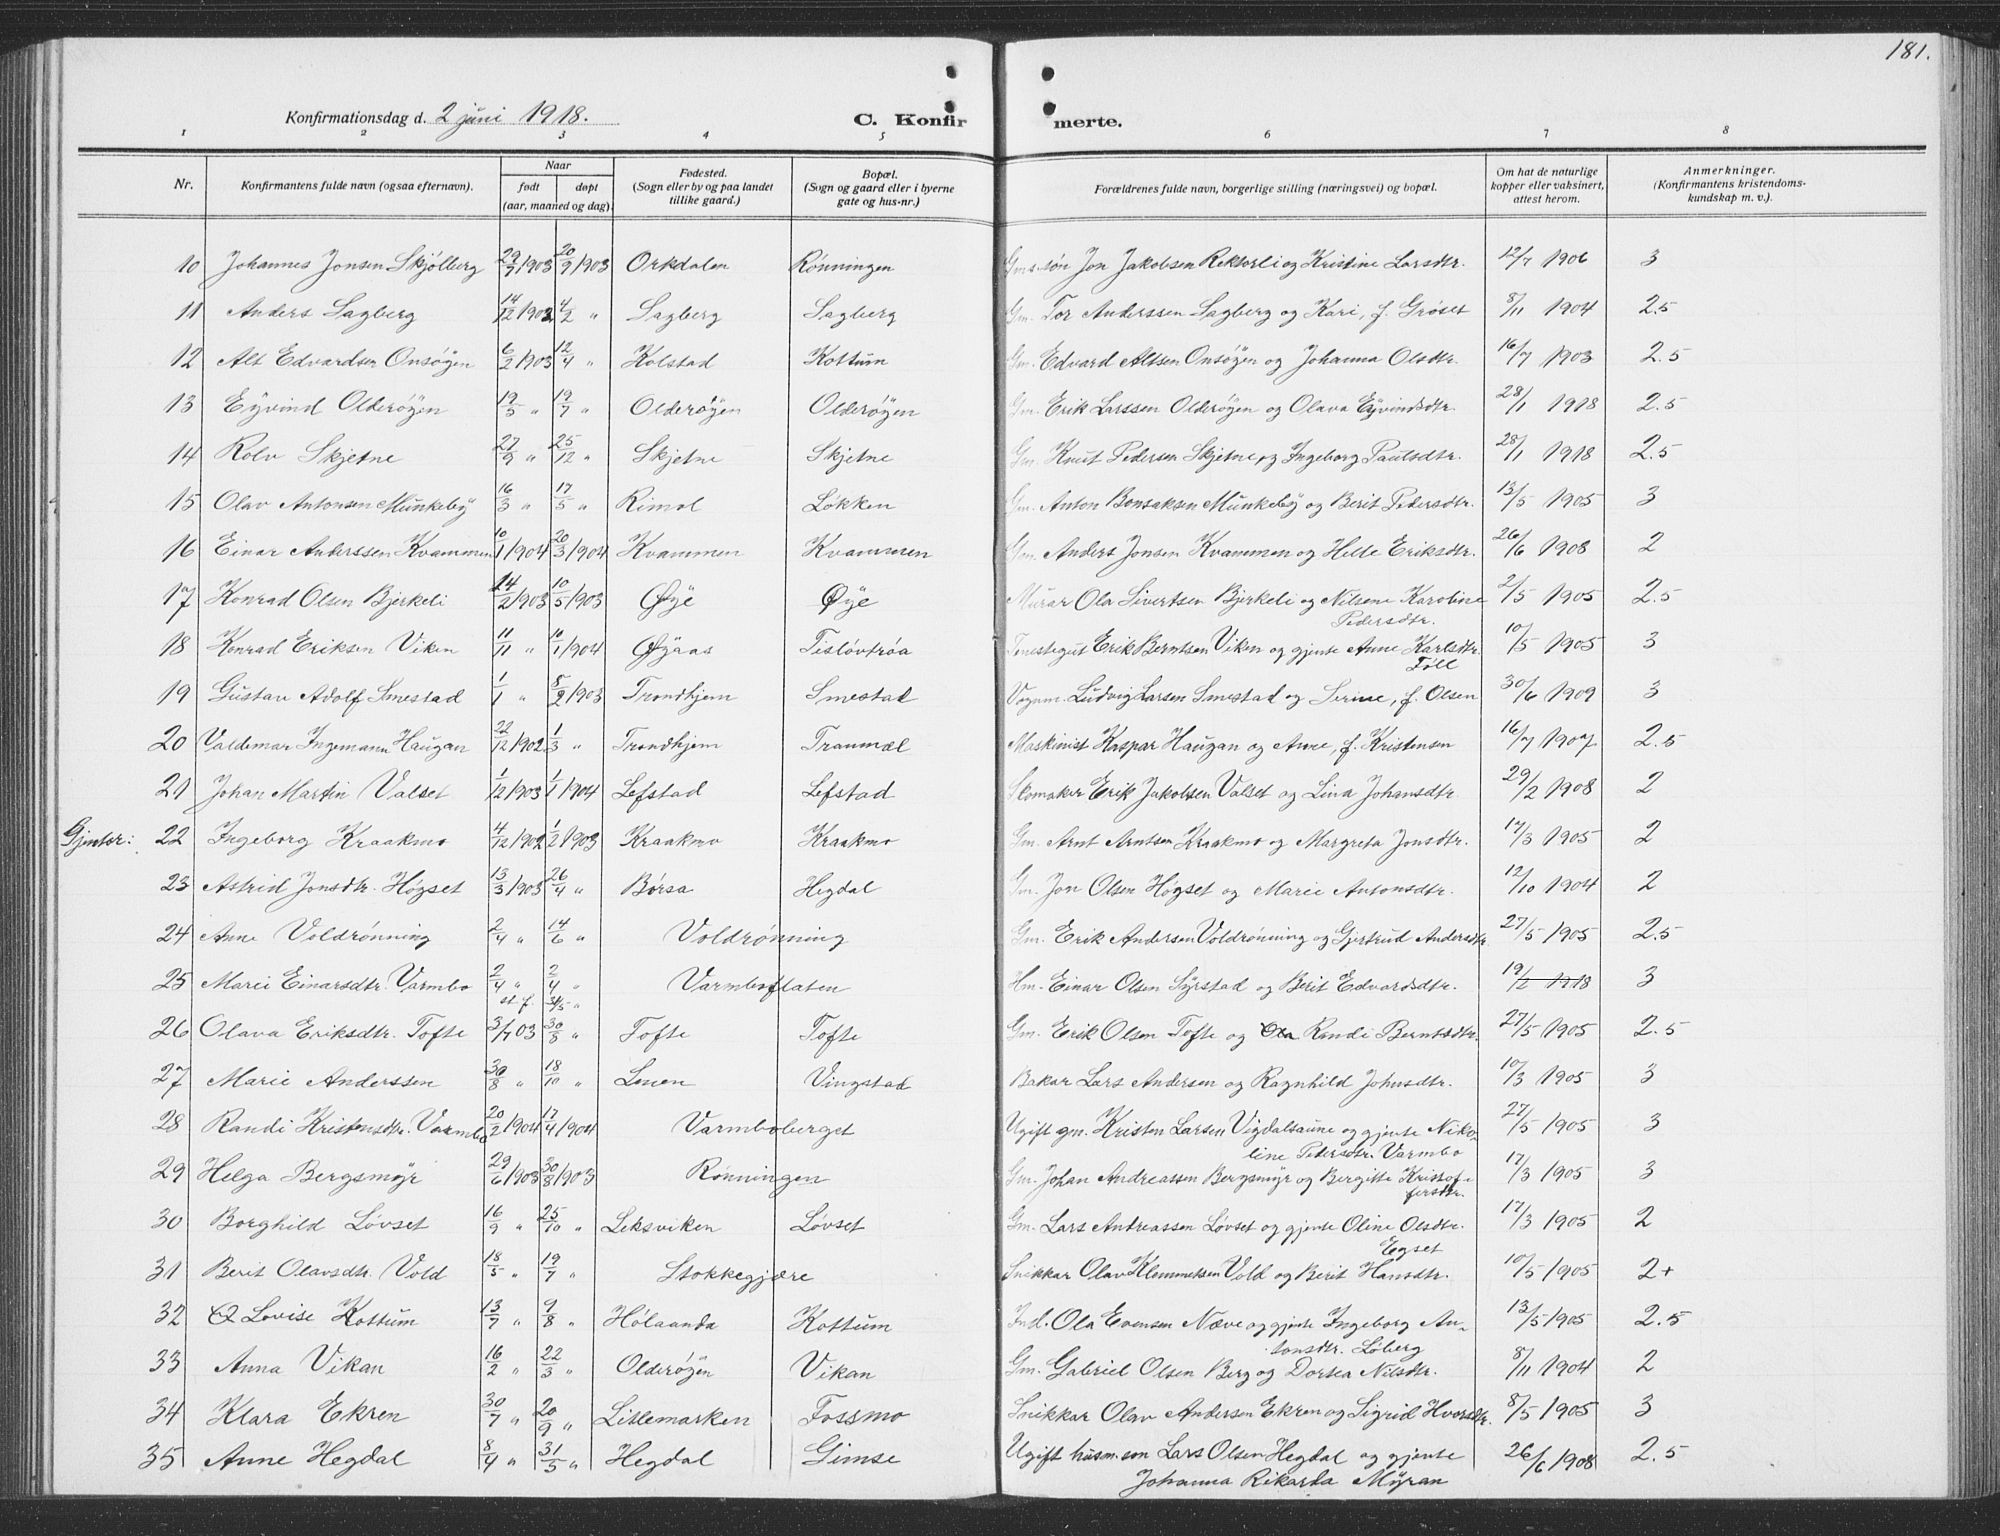 181.
Konfirmationsdag d. 2 juni 1918. C. Konfirmerte.
1 2 3 4 5 6 7 8
Nr. Konfirmantens fulde navn (ogsaa efternavn). Naar født døpt (aar, maaned og dag). Fødested. (Sogn eller by og paa landet tillike gaard.) Bopæl. (Sogn og gaard eller i byerne gate og hus-nr.) Forældrenes fulde navn, borgerlige stilling (næringsvei) og bopæl. Om hat de naturlige kopper eller vaksinert, attest herom. Anmerkninger. (Konfirmantens kristendomskundskap m. v.).
10 Johannes Jonsen Skjølberg 29/7 1903 20/9 1903 Orkdalen Rønningen Gm.s. søn Jon Jakobsen Rektorli og Kristine Larsdtr. 12/7 1906 3
11 Anders Sagberg 14/12 1902 4/2 " Sagberg Sagberg Gm. Tor Anderssen Sagberg og Kari, f. Grøset 8/11 1904 2.5
12 Alt Edvardsen Onsøyen 6/2 1903 12/4 " Kolstad Kottum Gm. Edvard Altsen Onsøyen og Johanna Olsdtr. 16/7 1903 2.5
13 Eyvind Olderøyen 19/5 " 19/7 " Olderøyen Olderøyen Gm. Erik Larssen Olderøyen og Olava Eyvindsdtr. 28/1 1918 2.5
14 Rolv Skjetne 27/9 " 25/12 " Skjetne Skjetne Gm. Knut Pedersen Skjetne og Ingeborg Paulsdtr. 28/1 1918 2.5
15 Olav Antonsen Munkeby 16/3 " 17/5 " Rimol Løkken Gm. Anton Bonsaksen Munkeby og Berit Pedersdtr. 13/5 1905 3
16 Einar Anderssen Kvammen 10/1 1904 20/3 1904 Kvammen Kvammen Gm. Anders Jonsen Kvammen og Helle Eriksdtr. 26/6 1908 2
17 Konrad Olsen Bjerkeli 14/2 1903 10/5 1903 Øye Øye Murar Ola Sivertsen Bjerkeli og Nilsene Karoline Pedersdtr. 2/5 1905 2.5
18 Konrad Eriksen Viken 11/11 " 10/1 1904 Øyaas Tisløvtrøa Tenestegut Erik Berntsen Viken og gjente Anne Karlsdtr. Føll 10/5 1905 3
19 Gustav Adolf Smestad 1/1 " 8/2 1903 Trondhjem Smestad Vognm. Ludvig Larsen Smestad og Serine, f. Olsen 30/6 1909 3
20 Valdemar Ingemann Haugan 22/12 1902 1/3 " Trondhjem Tranmæl Maskinist Kaspar Haugan og Anne, f. Kristensen 16/7 1907 2.5
21 Johan Martin Valset 1/12 1903 1/1 1904 Lefstad Lefstad Skomaker Erik Jakobsen Valset og Lina Johansdtr. 29/2 1908 2
Gjenter: 22 Ingeborg Kraakmo 4/12 1902 1/2 1903 Kraakmo Kraakmo Gm. Arnt Arntsen Kraakmo og Margreta Jonsdtr. 17/3 1905 2
23 Astrid Jonsdtr. Høgset 13/3 1903 26/4 " Børsa Hegdal Gm. Jon Olsen Høgset og Marie Antonsdtr. 12/10 1904 2
24 Anne Voldrønning 2/4 " 14/6 " Voldrønning Gm. Erik Andersen Voldrønning og Gjertrud Andersdtr. 27/5 1905 2.5
25 Marie Einarsdtr. Varmbo 2/4 " 2/4 " st. f. 31/5 " Varmboflaten Hm. Einar Olsen Syrstad og Berit Edvardsdtr. 19/2 1918 3
26 Olava Eriksdtr. Tofte 3/7 03 30/8 " Tofte Tofte Gm. Erik Olsen Tofte og Randi Berntsdtr. 27/5 1905 2.5
27 Marie Anderssen 30/8 " 18/10 " Lenen Vingstad Bakar Lars Andersen og Ragnhild Johnsdtr. 10/3 1905 3
28 Randi Kristensdtr. Varmbo 20/2 1904 17/4 1904 Varmboberget Ugift gm. Kristen Larsen Vigdalsaune og gjente Nikoline Pedersdtr. Varmbo 27/5 1905 3
29 Helga Bergsmyr 29/6 1903 30/8 1903 Rønningen Gm. Johan Andreassen Bergsmyr og Bergitte Kristoffersdtr. 17/3 1905 3
30 Borghild Løvset 16/9 " 25/10 " Leksviken Løvset Gm. Lars Andreassen Løvset og gjente Oline Olsdtr. Egset 17/3 1905 2
31 Berit Olavsdtr. Vold 18/5 " 19/7 " Stokkegjære Snikkar Olav Klemmetsen Vold og Berit Hansdtr. 10/5 1905 2+
32 Lovise Kottum 13/7 " 9/8 " Hølaanda Kottum Ind. Ola Evensen Næve og gjente Ingeborg Antonsdtr. Løberg 13/5 1905 2.5
33 Anna Vikan 16/2 " 22/3 " Olderøyen Vikan Gm. Gabriel Olsen Berg og Dortea Nilsdtr. 8/11 1904 2
34 Klara Ekren 30/7 " 20/9 " Litlemarken Fossmo Snikkar Olav Andersen Ekren og Sigrid Hvorsdtr. 8/5 1905 3
35 Anne Hegdal 8/4 " 31/5 " Hegdal Gimse Ugift husm.son Lars Olsen Hegdal og gjente Johanna Rikarda Myran 26/6 1908 2.5